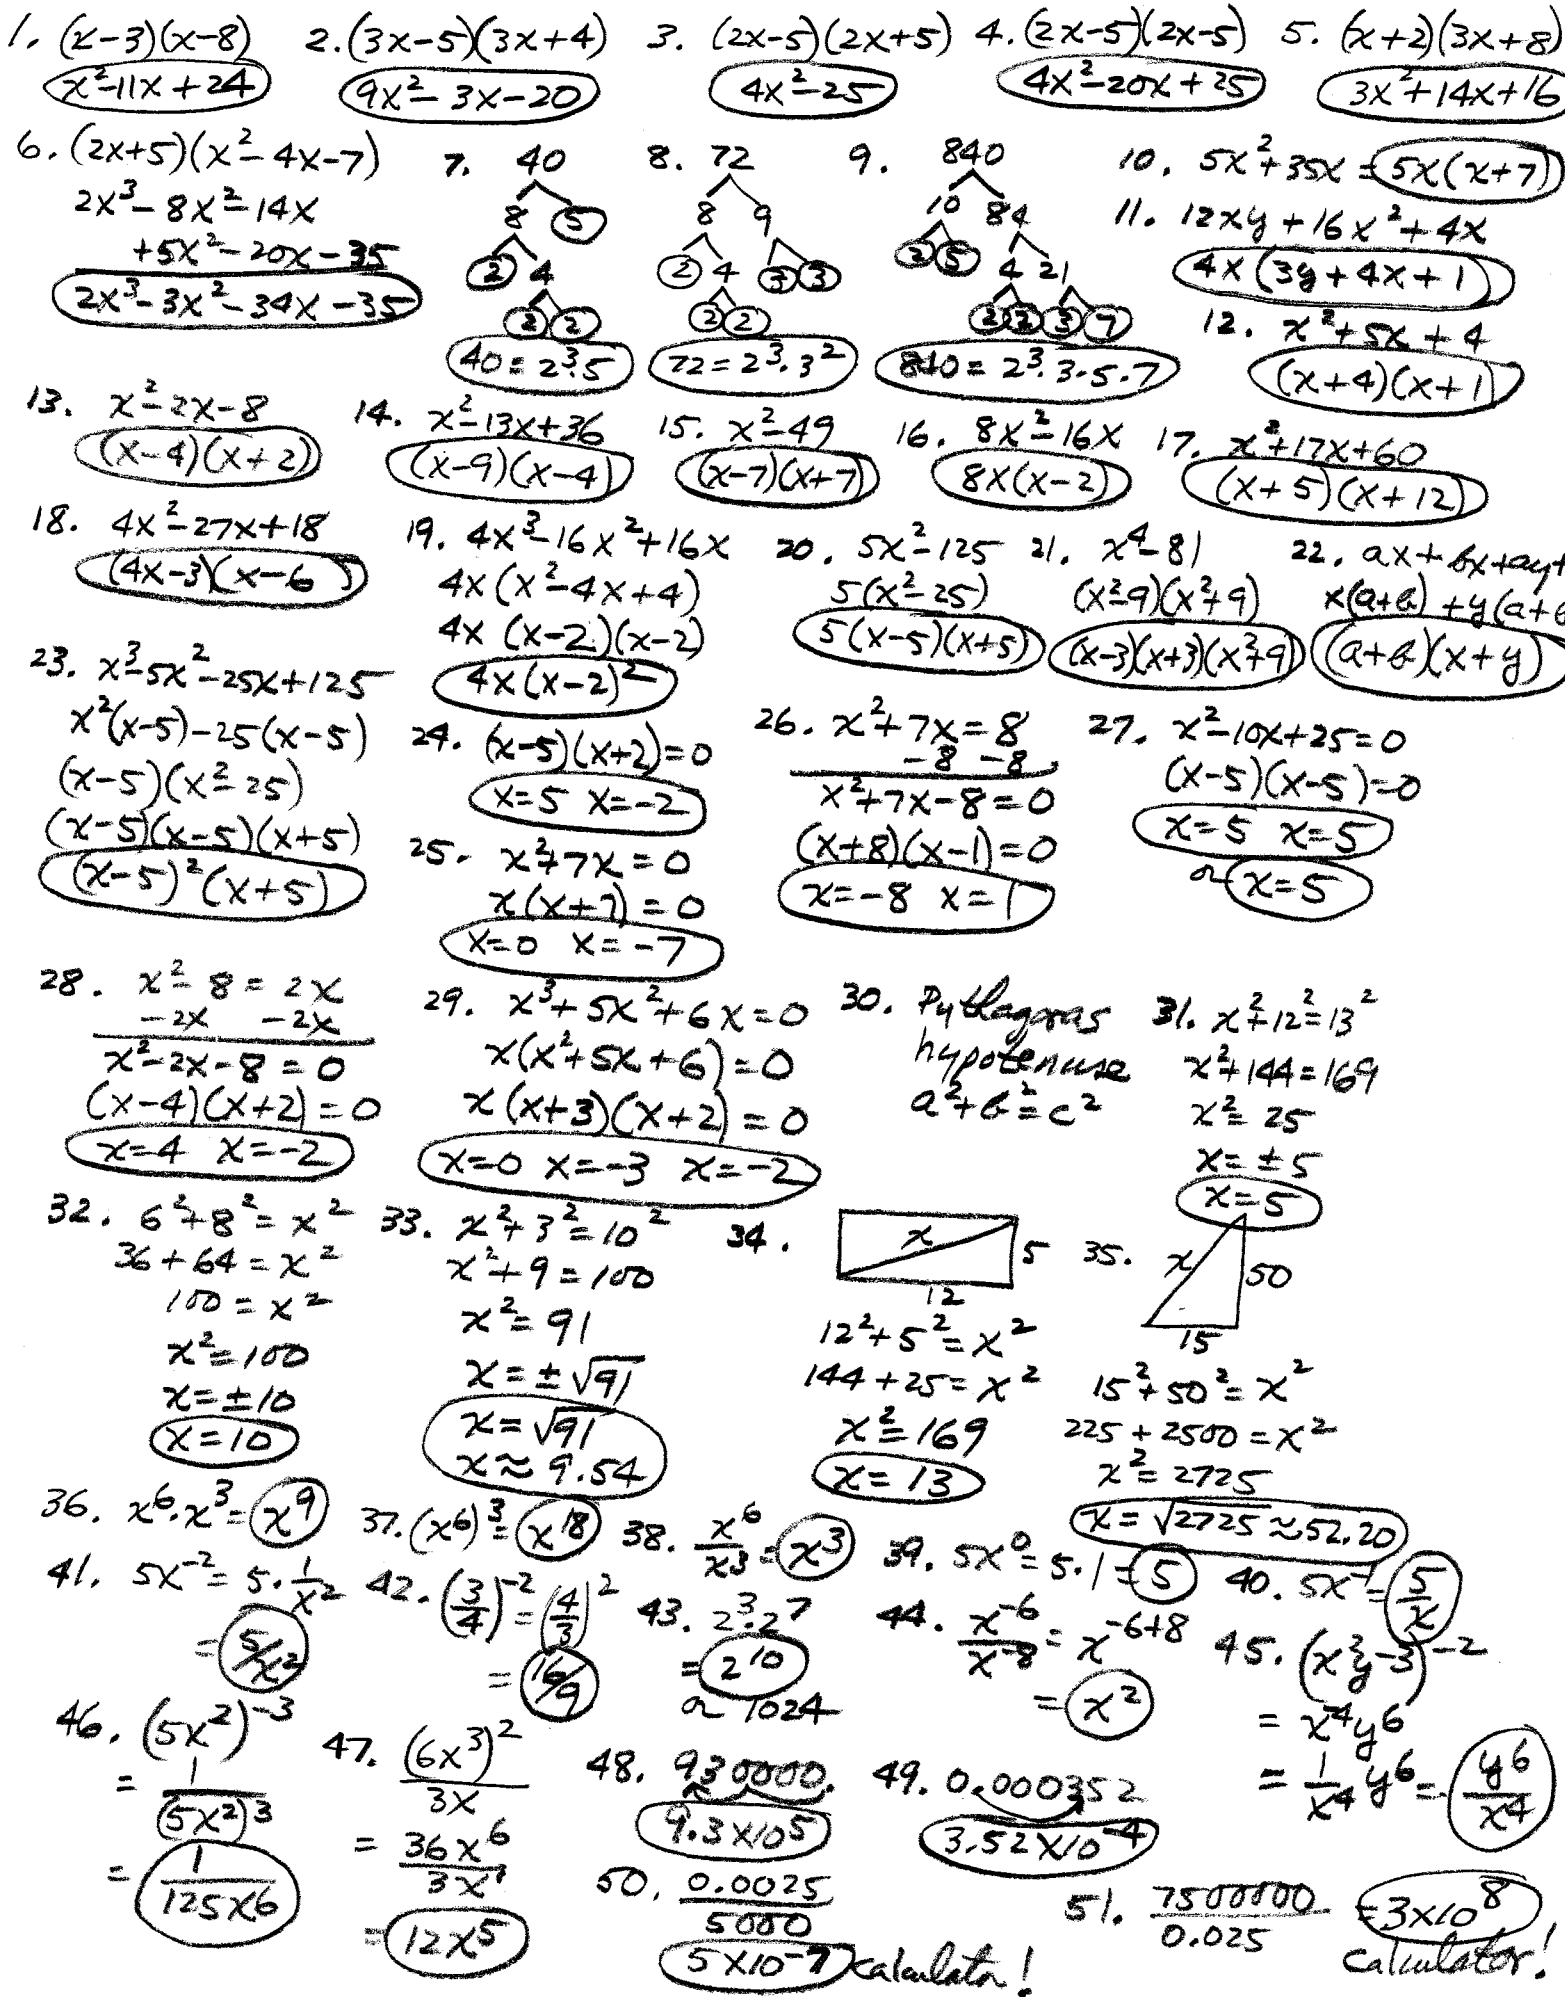 1. (x-3)(x-8) 2. (3x-5)(3x+4) 3. (2x-5)(2x+5) 4. (2x-5)(2x-5) 5. (x+2)(3x+8)
x²-11x+24 9x²-3x-20 4x²-25 4x²-20x+25 3x²+14x+16
6. (2x+5)(x²-4x-7)
2x³-8x²-14x
+5x²-20x-35
2x³-3x²-34x-35
7. 40
8 5
2 4
2 2
40=2³·5
8. 72
8 9
2 4 3 3
2 2
72=2³·3²
9. 840
10 84
2 5 4 21
2 2 3 7
840=2³·3·5·7
10. 5x²+35x=5x(x+7)
11. 12xy+16x²+4x
4x(3y+4x+1)
12. x²+5x+4
(x+4)(x+1)
13. x²-2x-8
(x-4)(x+2)
14. x²-13x+36
(x-9)(x-4)
15. x²-49
(x-7)(x+7)
16. 8x²-16x
8x(x-2)
17. x²+17x+60
(x+5)(x+12)
18. 4x²-27x+18
(4x-3)(x-6)
19. 4x³-16x²+16x
4x(x²-4x+4)
4x(x-2)(x-2)
4x(x-2)²
20. 5x²-125
5(x²-25)
5(x-5)(x+5)
21. x⁴-81
(x²-9)(x²+9)
(x-3)(x+3)(x²+9)
22. ax+bx+ay+
x(a+b)+y(a+b
(a+b)(x+y)
23. x³-5x²-25x+125
x²(x-5)-25(x-5)
(x-5)(x²-25)
(x-5)(x-5)(x+5)
(x-5)²(x+5)
24. (x-5)(x+2)=0
x=5 x=-2
25. x²+7x=0
x(x+7)=0
x=0 x=-7
26. x²+7x=8
-8 -8
x²+7x-8=0
(x+8)(x-1)=0
x=-8 x=1
27. x²-10x+25=0
(x-5)(x-5)=0
x=5 x=5
or x=5
28. x²-8=2x
-2x -2x
x²-2x-8=0
(x-4)(x+2)=0
x=4 x=-2
29. x³+5x²+6x=0
x(x²+5x+6)=0
x(x+3)(x+2)=0
x=0 x=-3 x=-2
30. Pythagoras
hypotenuse
a²+b²=c²
31. x²+12²=13²
x²+144=169
x²=25
x=±5
x=5
32. 6²+8²=x²
36+64=x²
100=x²
x²=100
x=±10
x=10
33. x²+3²=10²
x²+9=100
x²=91
x=±√91
x=√91
x≈9.54
34. x 5
12
12²+5²=x²
144+25=x²
x²=169
x=13
35. x 50
15
15²+50²=x²
225+2500=x²
x²=2725
x=√2725≈52.20
36. x⁶·x³=x⁹
37. (x⁶)³=x¹⁸
38. x⁶/x³=x³
39. 5x⁰=5·1=5
40. 5x⁻¹=5/x
41. 5x⁻²=5·1/x²
=5/x²
42. (3/4)⁻²=(4/3)²
=16/9
43. 2³·2⁷
=2¹⁰
or 1024
44. x⁻⁶/x⁻⁸=x⁻⁶⁺⁸
=x²
45. (x²y⁻³)⁻²
=x⁻⁴y⁶
=1/x⁴ y⁶=y⁶/x⁴
46. (5x²)⁻³
=1/(5x²)³
=1/125x⁶
47. (6x³)²/3x
=36x⁶/3x¹
=12x⁵
48. 930000.
9.3x10⁵
49. 0.000352
3.52x10⁻⁴
50. 0.0025/5000
5x10⁻⁷ calculator!
51. 7500000/0.025=3x10⁸
calculator!